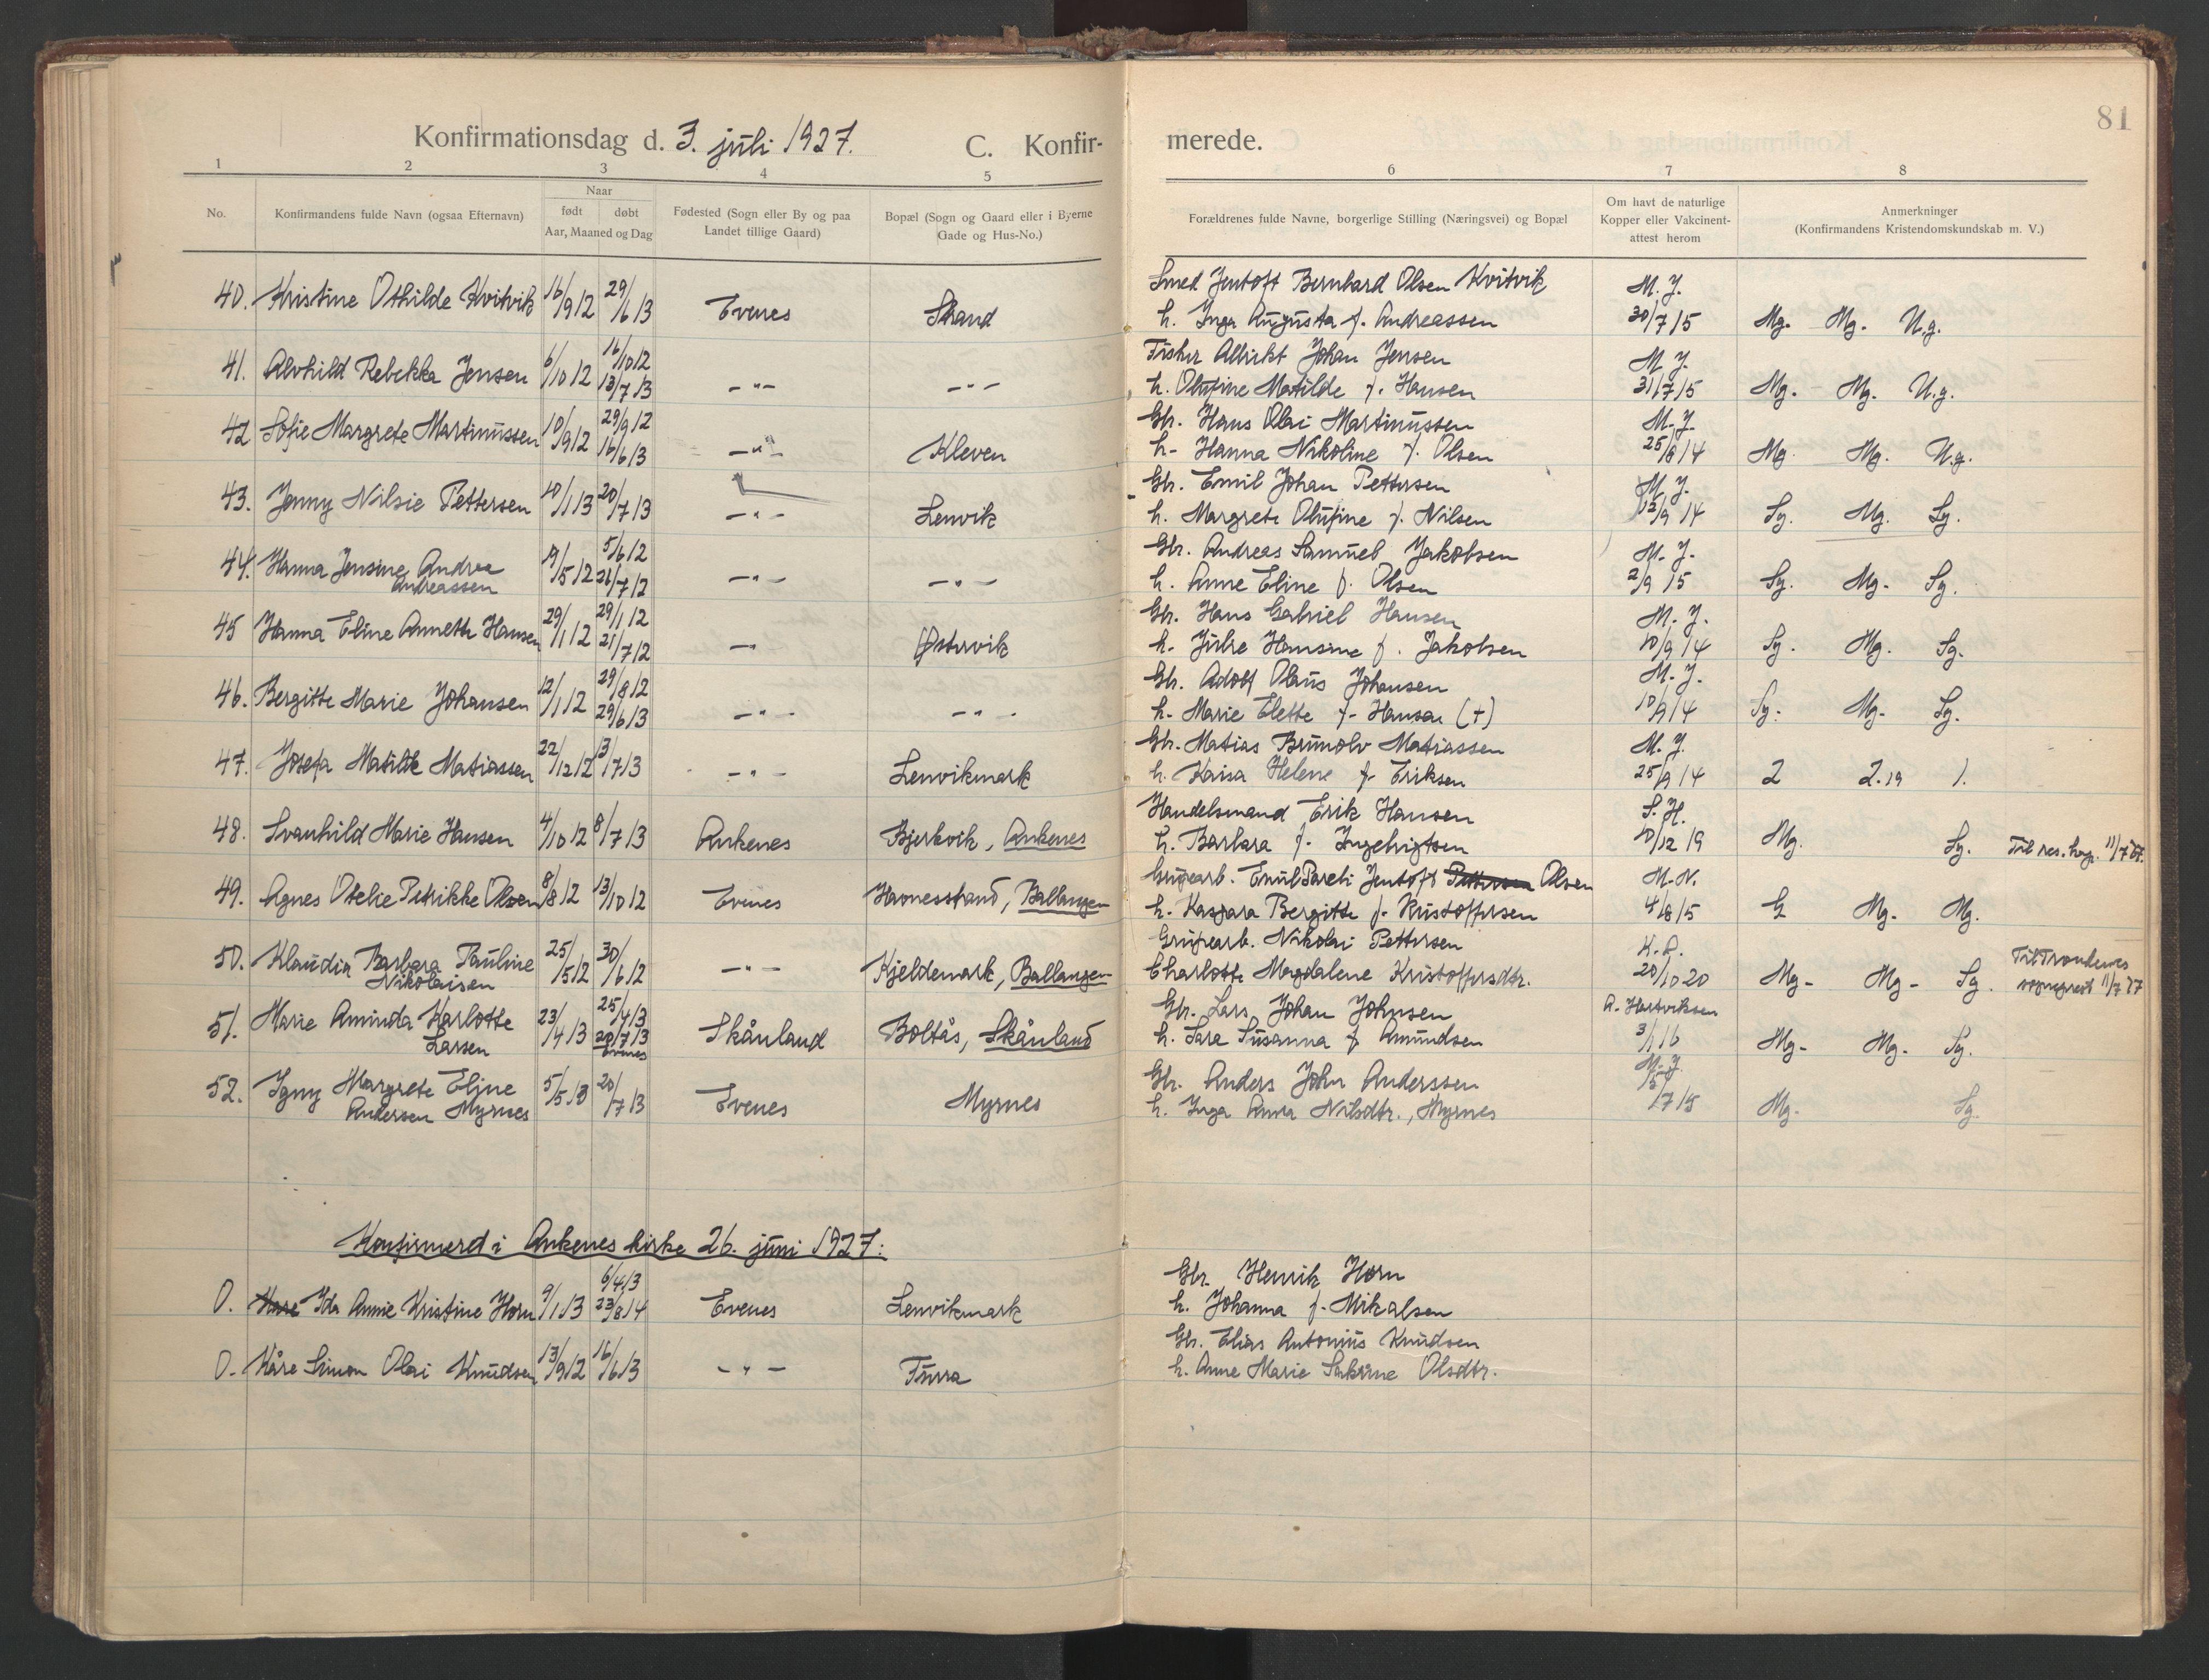 81
Konfirmationsdag d. 3. juli 1927. C. Konfir-
merede.
1 2 3 4 5
6 7 8
No. Konfirmandens fulde Navn (ogsaa Efternavn) Naar født døbt Aar, Maaned og Dag Fødested (Sogn eller By og paa Landet tillige Gaard) Bopæl (Sogn og Gaard eller i Byerne Gade og Hus-No.)
Forældrenes fulde Navne, borgerlige Stilling (Næringsvei) og Bopæl Om havt de naturlige Kopper eller Vakcinent-attest herom Anmerkninger (Konfirmandens Kristendomskundskab m. V.)
40. Kristine Othilde Kvitvik 16/9 12 29/6 13 Evenes Strand
Smed Jentoft Bernhard Olsen Kvitvik M. J.
h. Inga Augusta f. Andreassen 30/7 15 Mg. Mg. U.g.
41. Alvhild Rebekka Jensen 6/10 12 16/10 12 13/7 13 -"- -"-
Fisker Albrikt Johan Jensen M. J.
h. Olufine Matilde f. Hansen 31/7 15 Mg. Mg. U.g.
42 Sofie Margrete Martinussen 10/9 12 29/9 12 16/6 13 -"- Kleven
Gbr. Hans Olai Martinussen M. J.
h. Hanna Nikoline f. Olsen 25/8 14 Mg. Mg. U.g.
43. Jenny Nilsie Pettersen 10/1 13 20/7 13 -"- Lenvik
Gbr. Emil Johan Pettersen M. J.
h. Margrete Olufine f. Nilsen 12/9 14 Sg. Mg. Sg.
44. Hanna Jensine Andrea Andreassen 19/5 12 5/6 12 21/7 12 -"- -"-
Gbr. Andreas Samuel Jakobsen M. J.
h. Anne Eline f. Olsen 2/9 15 Sg. Mg. Sg.
45 Hanna Eline Annette Hansen 29/1 12 29/1 12 21/7 12 -"- Østervik
Gbr. Hans Gabriel Hansen M. J.
h. Julie Hansine f. Jakobsen 10/9 14 Sg. Mg. Sg.
46. Bergitte Marie Johansen 12/1 12 29/8 12 29/6 13 -"- -"-
Gbr. Adolf Olaus Johansen M. J.
h. Marie Elette f. Hansen (+) 10/9 14 Sg. Mg. Sg.
47. Josefa Matilde Matiassen 22/12 12 13/7 13 -"- Lenvikmark
Gbr. Matias Brunolv Matiassen M. J.
h. Kaisa Helene f. Eriksen 25/9 14 2 2.19 1.
48. Svanhild Marie Hansen 4/10 12 8/7 13 Ankenes Bjerkvik, Ankenes
Handelsmand Erik Hansen S. H.
h. Barbara f. Ingebrigtsen 10/12 19 Mg. Sg. Til res. kap. 11/7 27.
49. Agnes Otelie Petrikke Olsen 8/8 12 13/10 12 Evenes Havnesstrand, Ballangen
Grubearb. Emil Pareli Jentoft Pettersen Olsen M. N.
h. Kaspara Bergitte f. Kristoffersen 4/8 15 G Mg. Mg.
50. Klaudia Barbara Pauline Nikolaisen 25/5 12 30/6 12 -"- Kjeldemark, Ballangen
Grubearb. Nikolai Pettersen K. P.
Charlotte Magdalene Kristoffersdtr. 20/10 20 Mg- Mg- Sg. Til Trondenes sogneprest 11/7 27
51. Marie Aminda Karlotte Larsen 23/4 13 25/4 13 20/7 13 Evenes Skånland Boltås, Skånland
Gbr. Lars Johan Johnsen A. Hartviksen
h. Sara Susanna f. Amundsen 3/1 16 Mg- Mg- Sg.
52. Igny Margrete Eline Andersen Myrnes 5/5 13 20/7 13 Evenes Myrnes
Gbr. Anders John Anderssen M. J.
h. Inga Anna Nilsdtr., Myrnes 15/7 15 Mg. Sg.
Konfirmerd i Ankenes kirke 26. juni 1927:
0. Ida Annie Kristine Horn 9/1 13 6/4 13 23/8 14 Evenes Lenvikmark
Gbr. Henrik Horn
h. Johanna f. Mikalsen
0. Kåre Simon Olai Knudsen 13/9 12 16/6 13 -"- Turra
Gbr. Elias Antonius Knudsen
h. Anne Marie Sakrine Olsdtr.